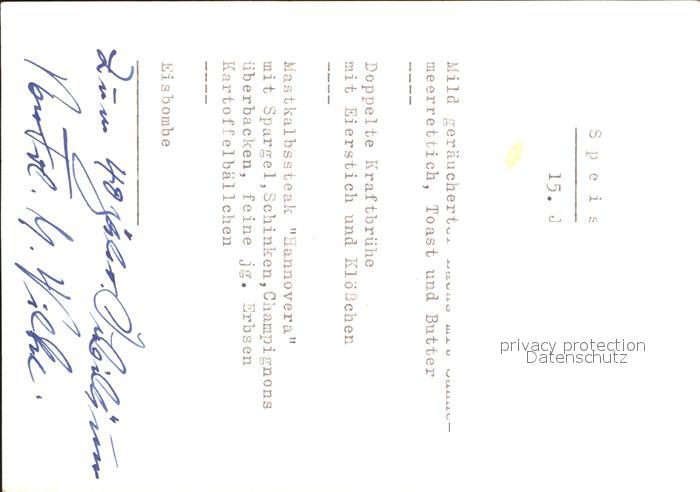 Speis
15. J
Mild geräucherter Lachs mit Sahne-
meerrettich, Toast und Butter
----
Doppelte Kraftbrühe
mit Eierstich und Klößchen
----
Mastkalbssteak "Hannovera"
mit Spargel,Schinken,Champignons
überbacken, feine jg. Erbsen
Kartoffelbällchen
----
Eisbombe
Zum 40 jähr. Jubiläum
privacy protection
Datenschutz